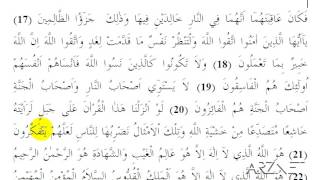 فَكَانَ عَاقِبَتَهُمَا أَنَّهُمَا فِي النَّارِ خَالِدَيْنِ فِيهَا وَذَٰلِكَ جَزَٰؤُا الظَّالِمِينَ (17)
يَاأَيُّهَا الَّذِينَ آمَنُوا اتَّقُوا اللَّهَ وَلْتَنْظُرْ نَفْسٌ مَا قَدَّمَتْ لِغَدٍ وَاتَّقُوا اللَّهَ إِنَّ اللَّهَ
خَبِيرٌ بِمَا تَعْمَلُونَ (18) وَلَا تَكُونُوا كَالَّذِينَ نَسُوا اللَّهَ فَأَنْسَاهُمْ أَنْفُسَهُمْ
أُولَٰئِكَ هُمُ الْفَاسِقُونَ (19) لَا يَسْتَوِي أَصْحَابُ النَّارِ وَأَصْحَابُ الْجَنَّةِ أَصْحَابُ
الْجَنَّةِ هُمُ الْفَائِزُونَ (20) لَوْ أَنْزَلْنَا هَٰذَا الْقُرْآنَ عَلَىٰ جَبَلٍ لَرَأَيْتَهُ
خَاشِعًا مُتَصَدِّعًا مِنْ خَشْيَةِ اللَّهِ وَتِلْكَ الْأَمْثَالُ نَضْرِبُهَا لِلنَّاسِ لَعَلَّهُمْ يَتَفَكَّرُونَ
(21) هُوَ اللَّهُ الَّذِي لَا إِلَٰهَ إِلَّا هُوَ عَالِمُ الْغَيْبِ وَالشَّهَادَةِ هُوَ الرَّحْمَٰنُ الرَّحِيمُ
(22) هُوَ اللَّهُ الَّذِي لَا إِلَٰهَ إِلَّا هُوَ الْمَلِكُ الْقُدُّوسُ السَّلَامُ الْمُؤْمِنُ الْمُهَيْمِنُ